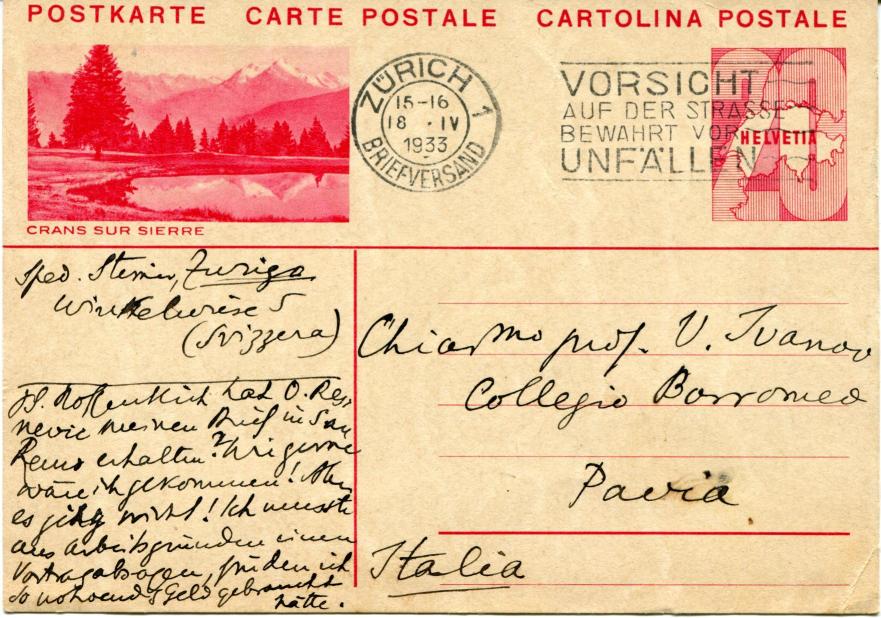 POSTKARTE CARTE POSTALE CARTOLINA POSTALE
CRANS SUR SIERRE
ZÜRICH 1
15-16
18 . IV
1933
BRIEFVERSAND
VORSICHT
AUF DER STRASSE
BEWAHRT VOR
UNFÄLLEN
20
HELVETIA
Sped. Steiner, Zuriga
Winkelwiese 5
(Svizzera)
PS. Hoffentlich hat O. Res
nevic meinen Brief in San
Remo erhalten? Wie gerne
wäre ich gekommen! Aber
es ging nicht! Ich musste
aus Arbeitsgründen einen
Vortrag absagen, für den ich
so notwendig Geld gebraucht
hätte.
Chiarmo prof. V. Ivanov
Collegio Borromeo
Pavia
Italia